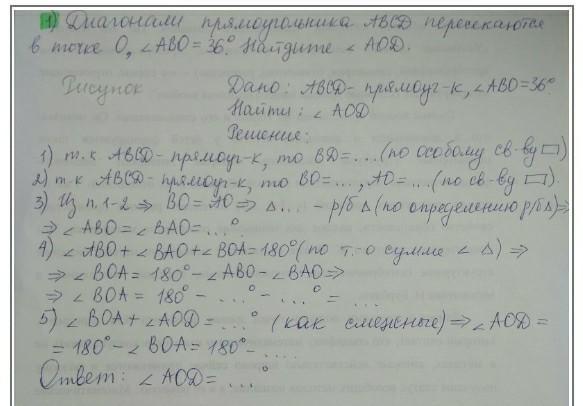 1) Диагонали прямоугольника ABCD пересекаются
в точке O, ∠ABO = 36°. Найдите ∠AOD.
Рисунок Дано: ABCD - прямоуг-к, ∠ABO = 36°
Найти: ∠AOD
Решение:
1) т.к ABCD - прямоуг-к, то BD = ... (по особому св-ву ▭)
2) т.к ABCD - прямоуг-к, то BO = ..., AO = ... (по св-ву ▭).
3) Из п. 1-2 ⇒ BO = AO ⇒ Δ... - р/б Δ (по определению р/б Δ) ⇒
⇒ ∠ABO = ∠BAO = ...°
4) ∠ABO + ∠BAO + ∠BOA = 180° (по т.-о сумме ∠ Δ) ⇒
⇒ ∠BOA = 180° - ∠ABO - ∠BAO ⇒
⇒ ∠BOA = 180° - ...° - ...° = ...
5) ∠BOA + ∠AOD = ...° (как смежные) ⇒ ∠AOD =
= 180° - ∠BOA = 180° - ...
Ответ: ∠AOD = ...°